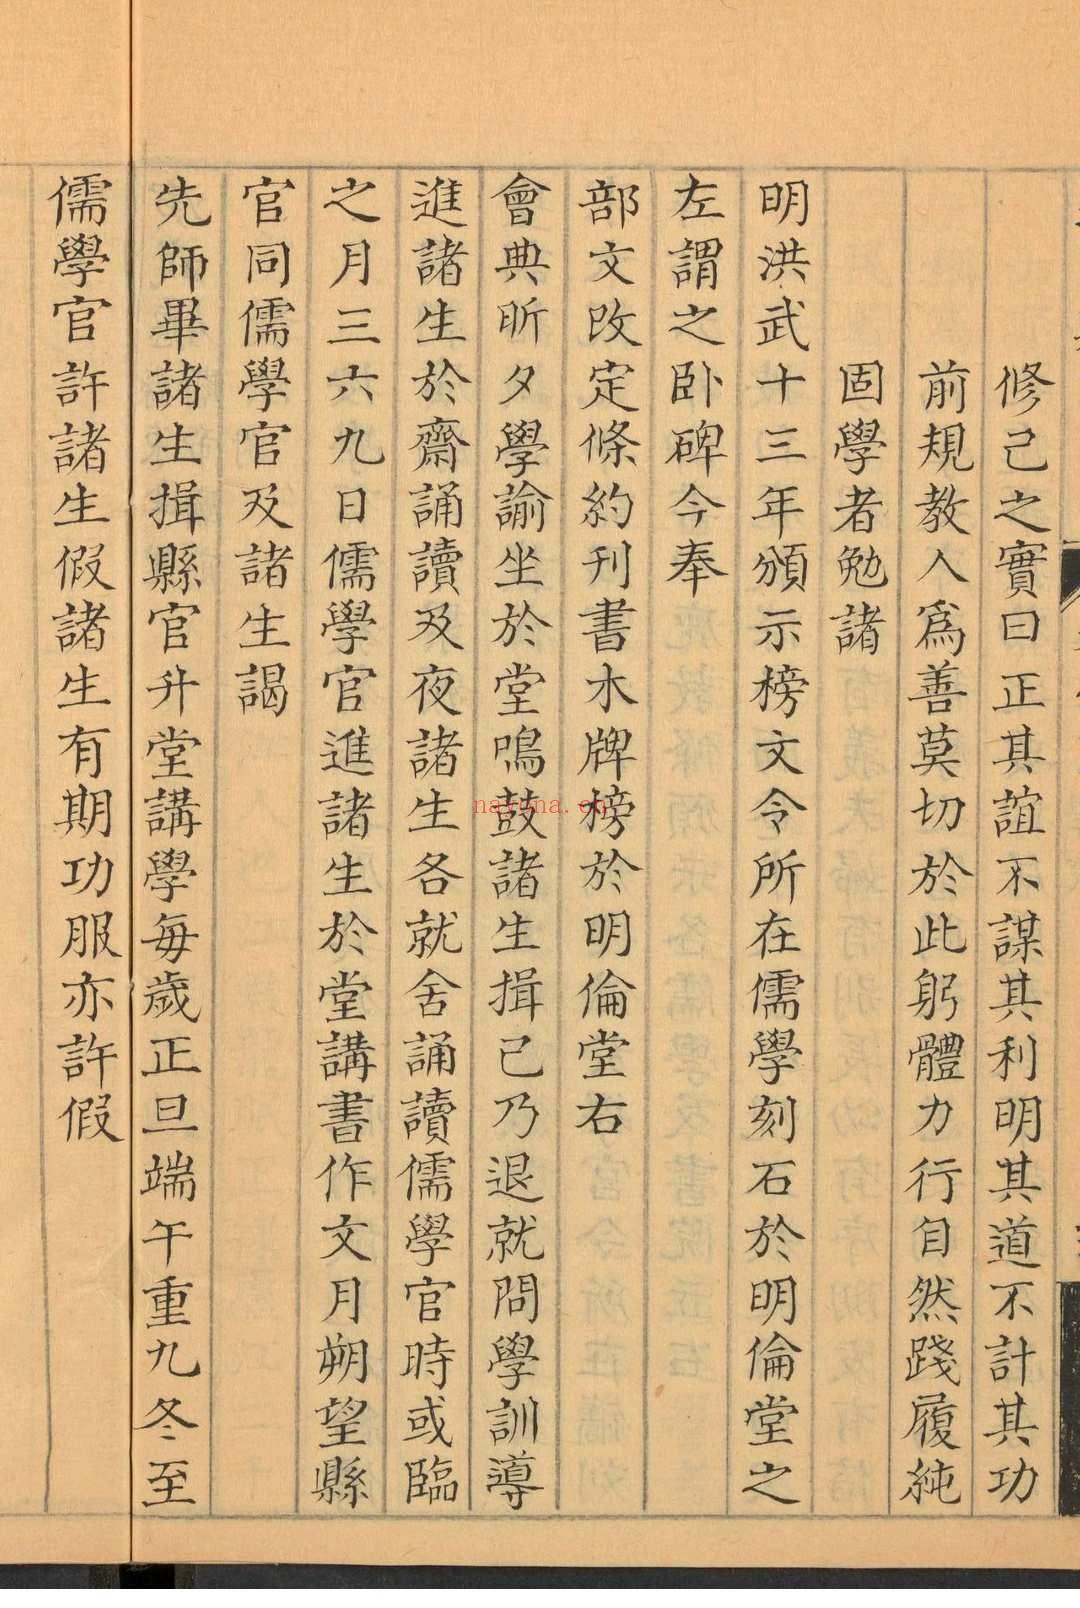 修己之實曰正其誼不謀其利明其道不計其功
前規教人爲善莫切於此躬體力行自然踐履純
固學者勉諸
明洪武十三年頒示榜文令所在儒學刻石於明倫堂之
左謂之卧碑今奉
部文改定條約刊書木牌榜於明倫堂右
會典昕夕學諭坐於堂鳴鼓諸生揖已乃退就問學訓導
進諸生於齋誦讀及夜諸生各就舍誦讀儒學官時或臨
之月三六九日儒學官進諸生於堂講書作文月朔望縣
官同儒學官及諸生謁
先師畢諸生揖縣官升堂講學每歲正旦端午重九冬至
儒學官許諸生假諸生有期功服亦許假